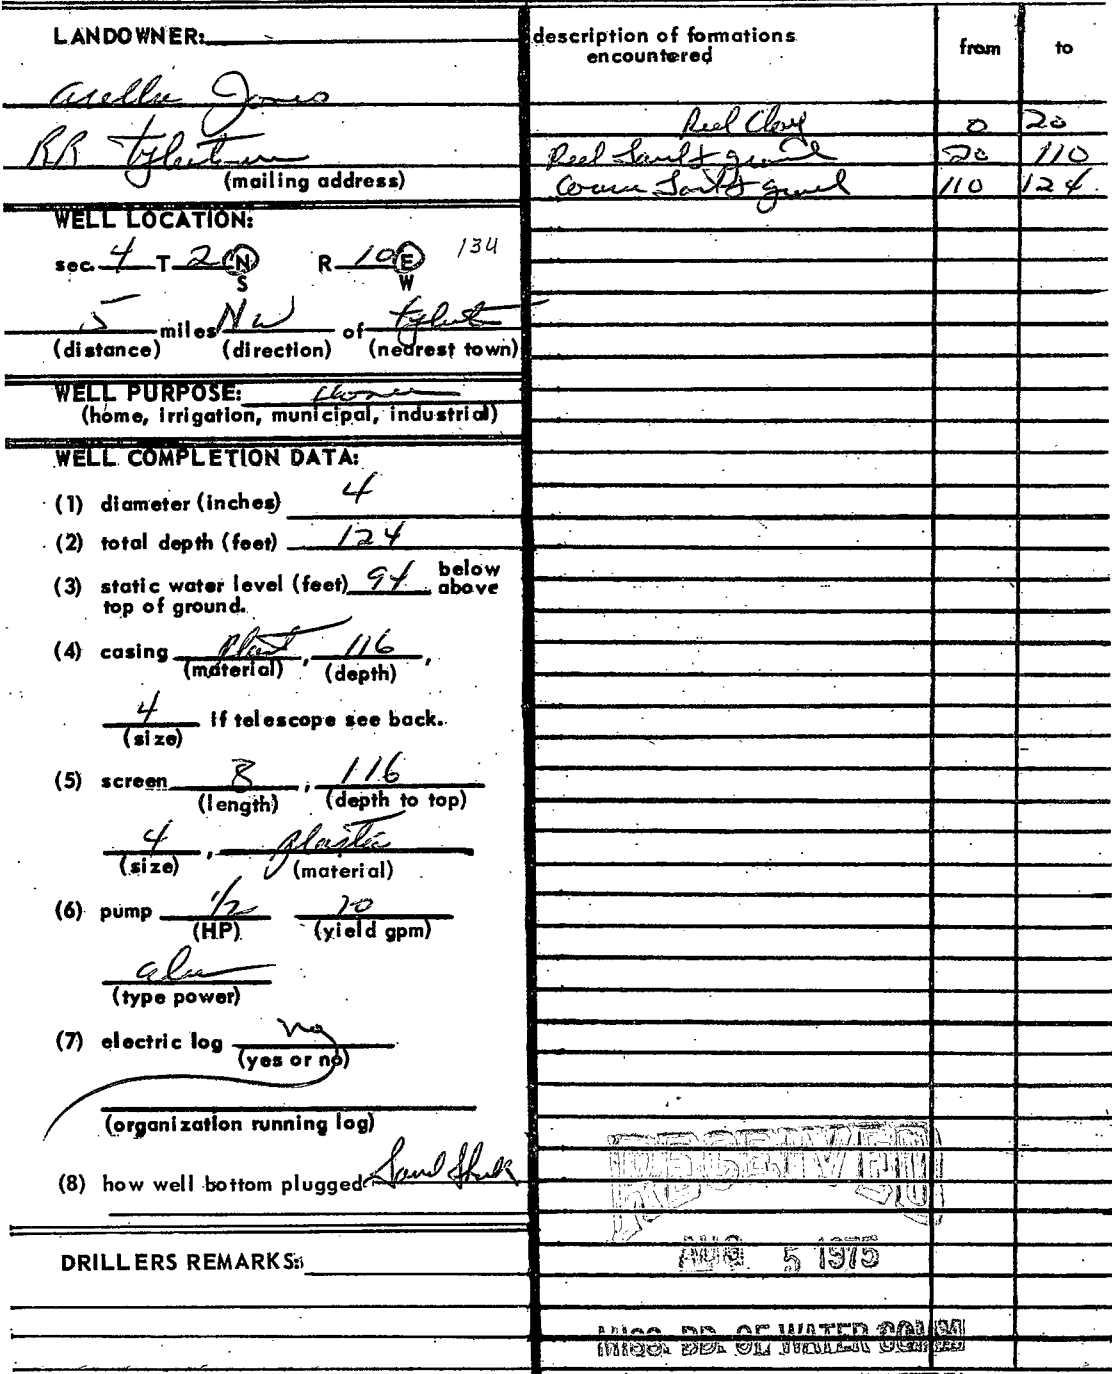 LANDOWNER:
Arellia Jones
RR Tylertown
(mailing address)
WELL LOCATION:
sec. 4 T 2 N R 10 E 134
S W
5 miles NW of Tylert
(distance) (direction) (nearest town)
WELL PURPOSE: Home
(home, irrigation, municipal, industrial)
WELL COMPLETION DATA:
(1) diameter (inches) 4
(2) total depth (feet) 124
(3) static water level (feet) 94 below
above
top of ground.
(4) casing plast, 116,
(material) (depth)
4 If telescope see back.
(size)
(5) screen 8, 116
(length) (depth to top)
4, plastic
(size) (material)
(6) pump 1/2
(HP) (yield gpm)
(type power)
(7) electric log no
(yes or no)
(organization running log)
(8) how well bottom plugged Sand
DRILLERS REMARKS:
description of formations
encountered from to
Red Clay 0 20
Red Sand & gravel 20 110
Coarse Sand & gravel 110 124
RECEIVED
AUG 5 1975
MISS. BD. OF WATER COMM